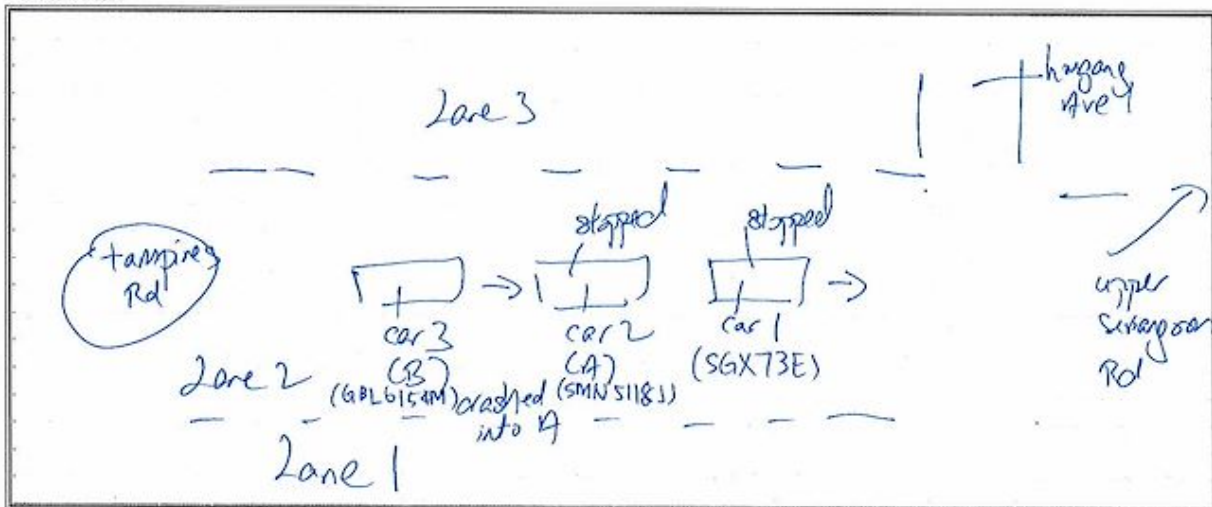 Lane 3
hougang
Ave 1
stopped
stopped
tampines
Rd
car 3
(B)
(GBL6154M)
crashed
into A
car 2
(A)
(SMN5118J)
car 1
(SGX73E)
upper
Serangoon
Rd
Lane 2
Lane 1